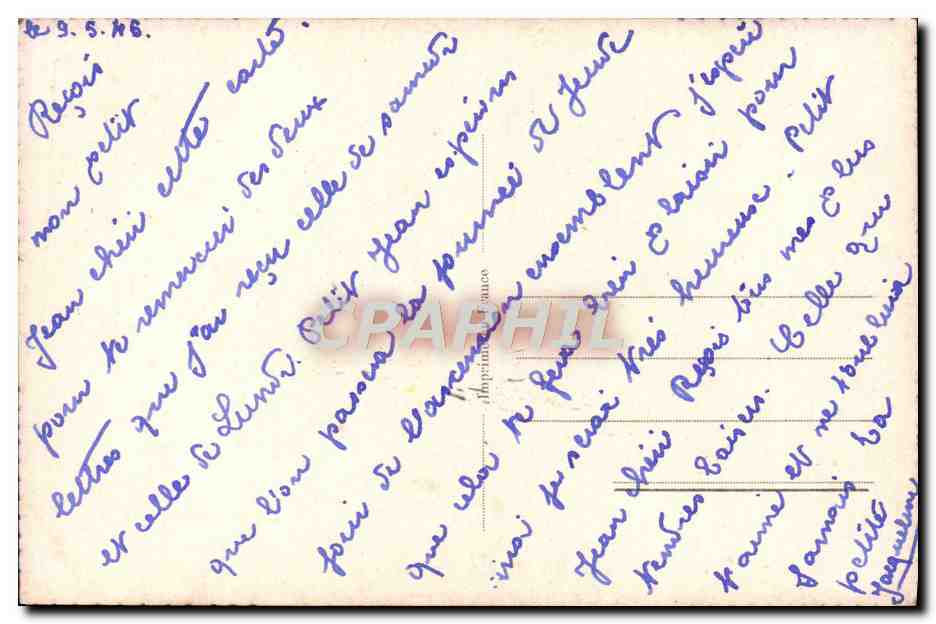 le 9.5.46.
Reçois
mon petit
Jean chéri cette carte.
pour te remercier des deux
lettres que j'ai reçu celle de samedi
et celle de Lundi. Petit Jean espérons
que l'on passera la journée de Jeudi
jour de l'ascension ensemblent j'espère
que cela te fera bien plaisir pour
moi je serai très heureuse. Petit
Jean chéri Reçois tous mes plus
tendres baisers. Celle qui
t'aime et ne t'oublira
jamais ta
petite
Jacqueline
Imprimé France
CPAPHIL